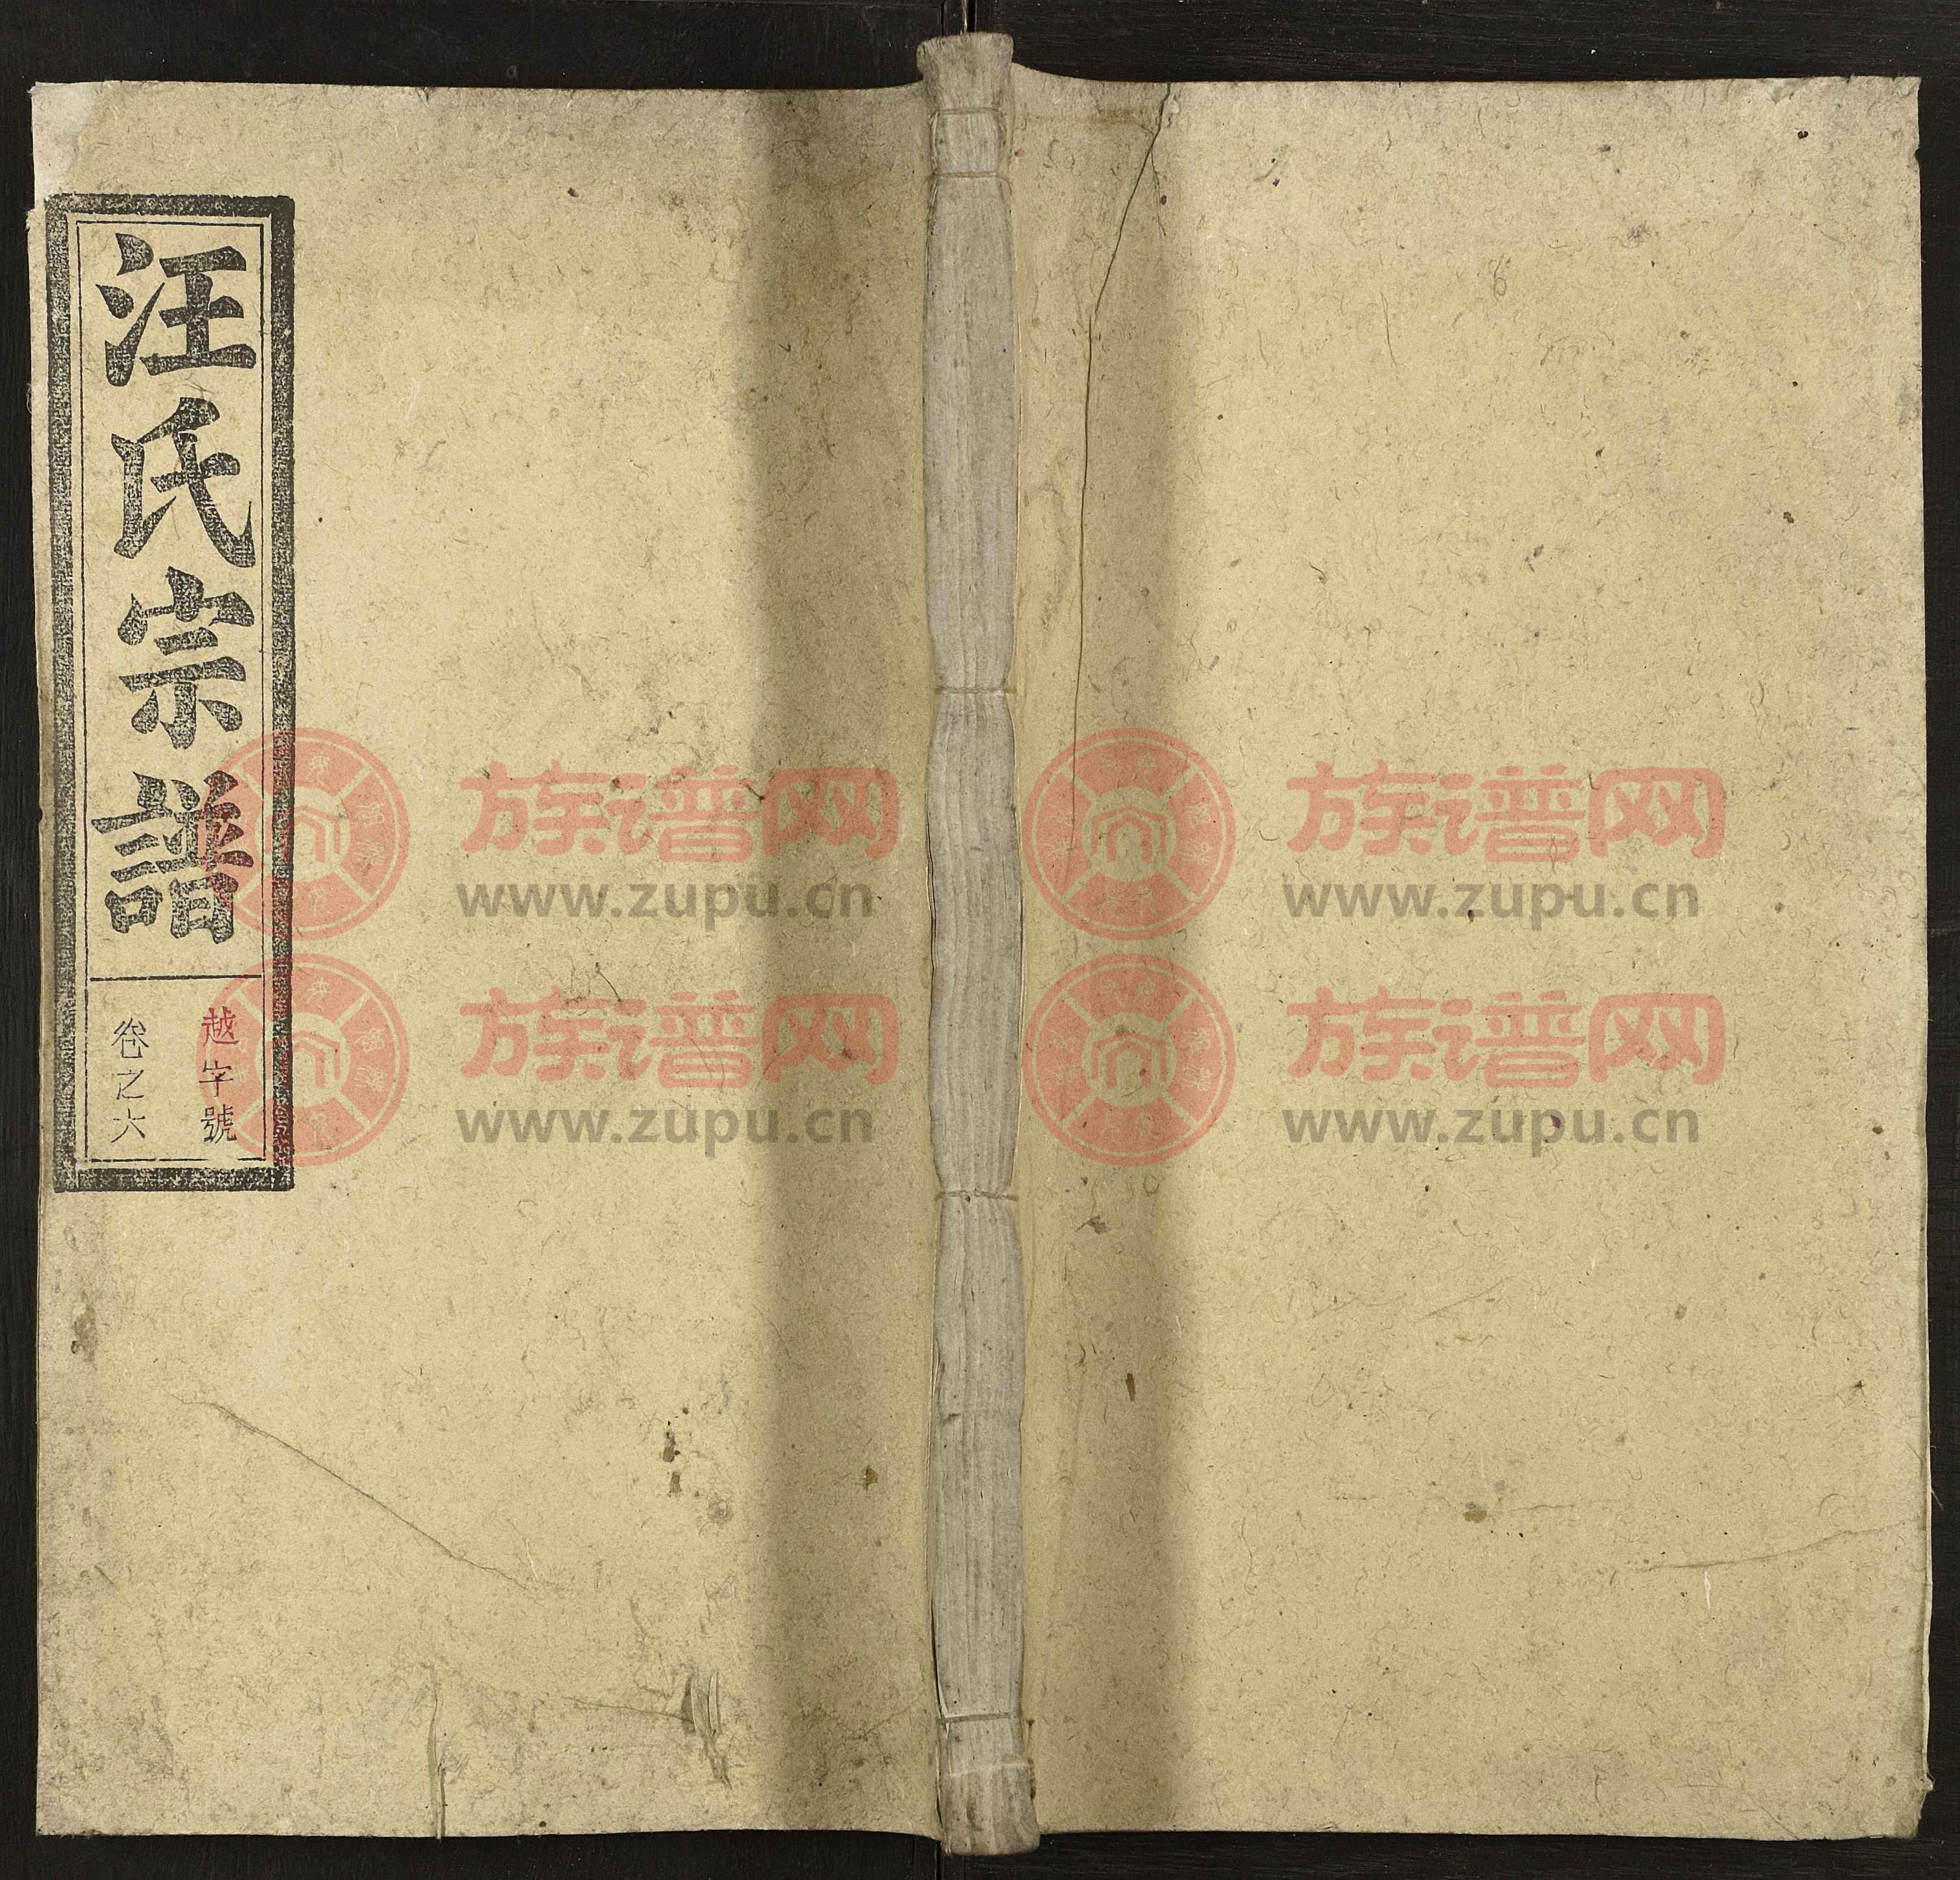 汪氏宗譜
越字號
卷之六
8
族谱网
www.zupu.cn
族谱网
www.zupu.cn
族谱网
www.zupu.cn
族谱网
www.zupu.cn